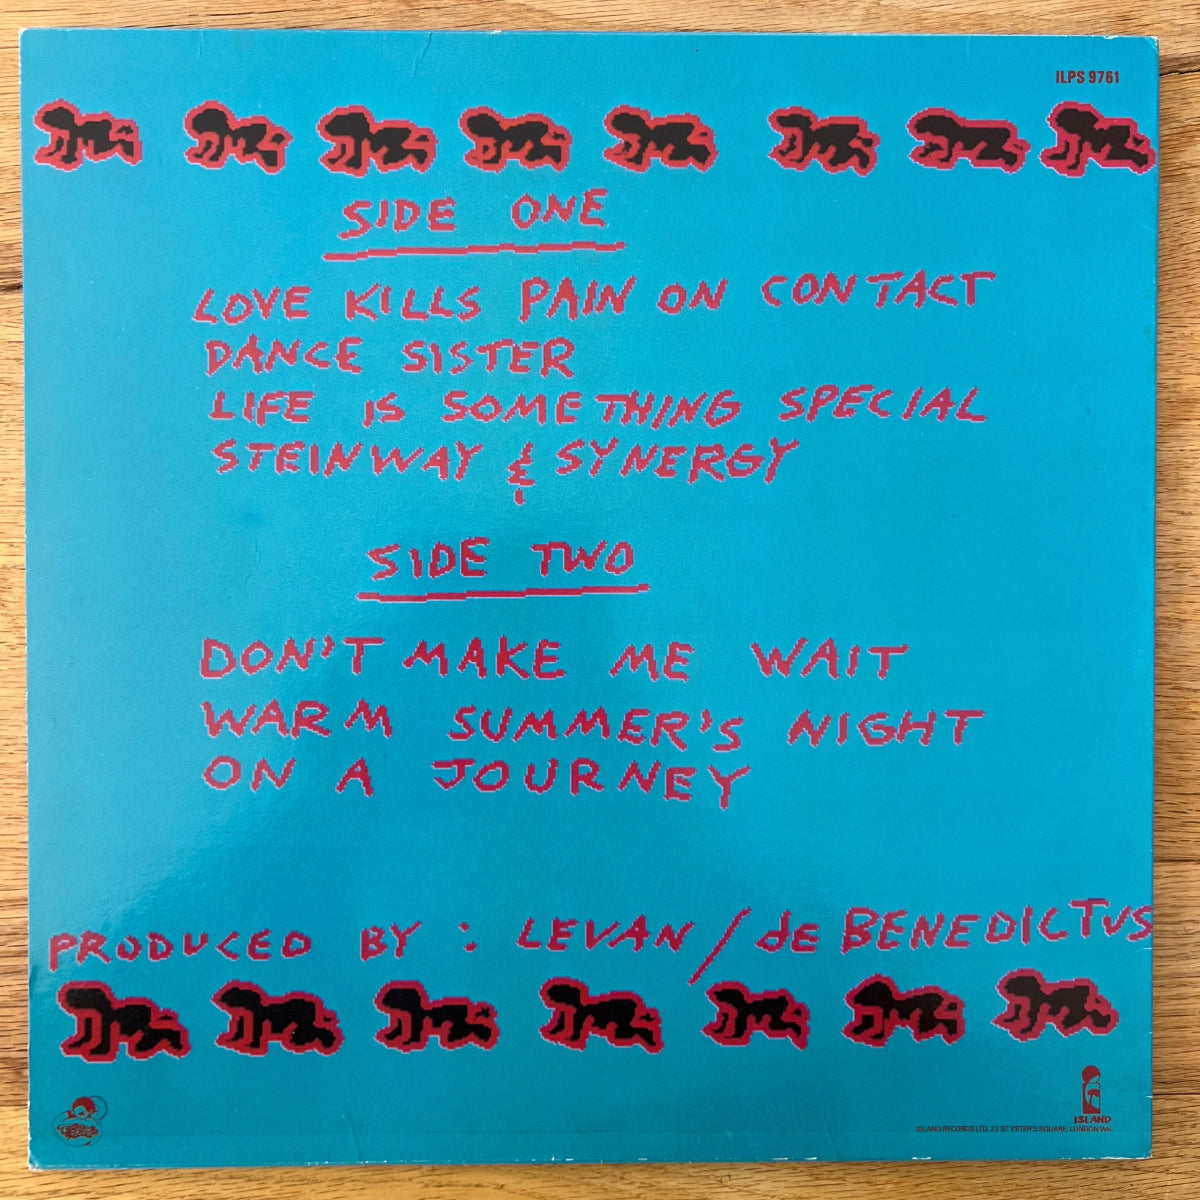 ILPS 9761
SIDE ONE
LOVE KILLS PAIN ON CONTACT
DANCE SISTER
LIFE IS SOMETHING SPECIAL
STEINWAY & SYNERGY
SIDE TWO
DON'T MAKE ME WAIT
WARM SUMMER'S NIGHT
ON A JOURNEY
PRODUCED BY: LEVAN/de BENEDICTUS
ISLAND
ISLAND RECORDS LTD, 22 ST. PETER'S SQUARE, LONDON W6